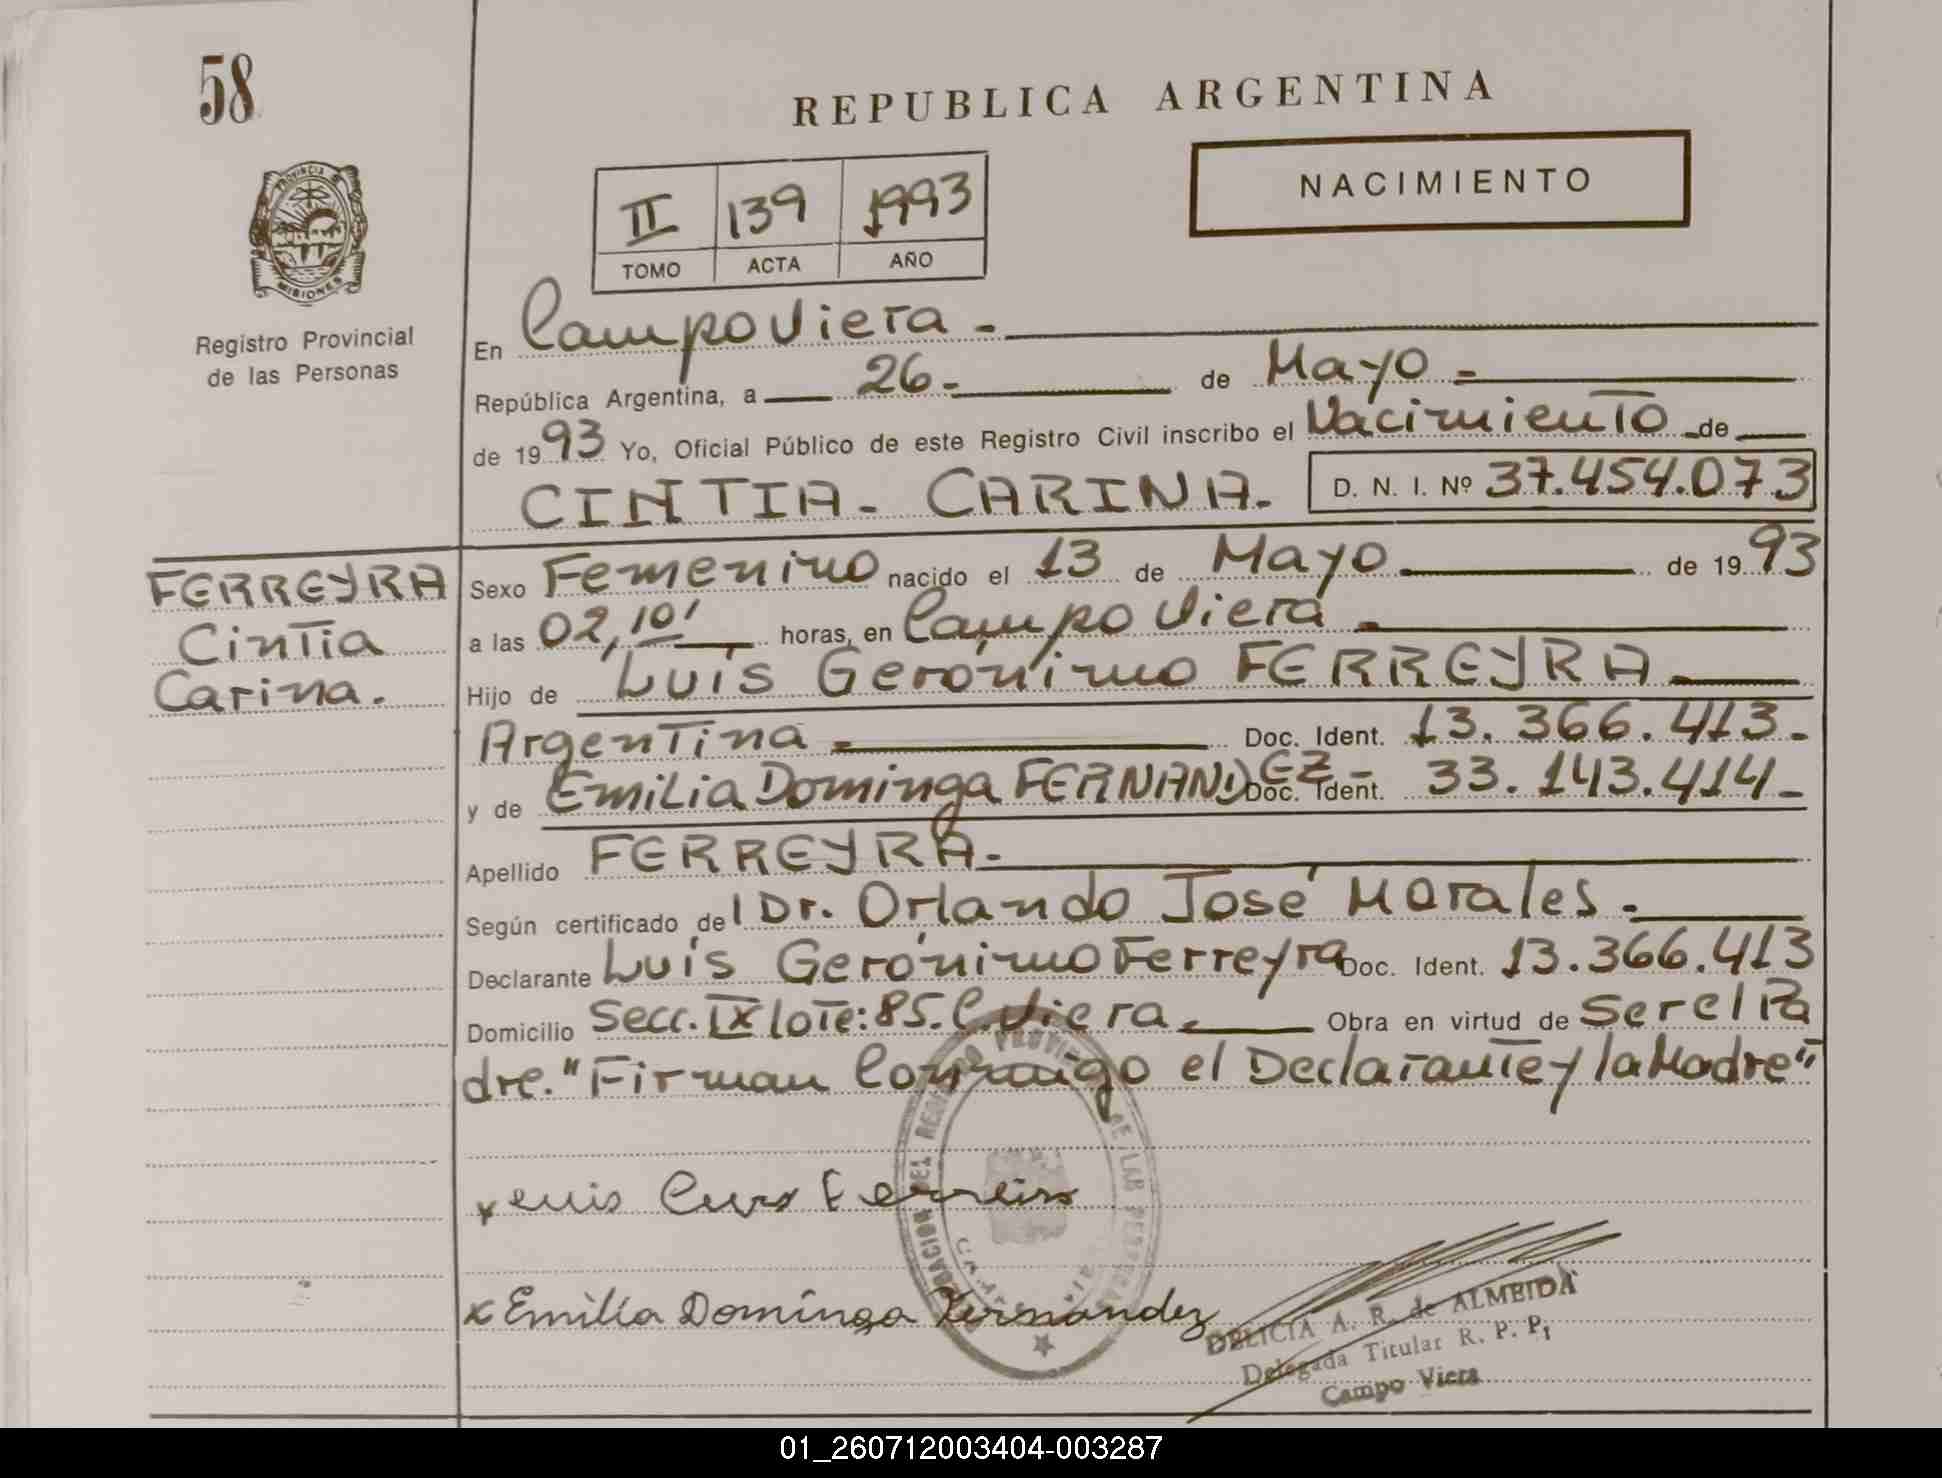 58
REPUBLICA ARGENTINA
NACIMIENTO
II 139 1993
TOMO ACTA AÑO
PROVINCIA DE
MISIONES
Registro Provincial
de las Personas
En Campo Viera -
República Argentina, a 26.- de Mayo -
de 1993 Yo, Oficial Público de este Registro Civil inscribo el Nacimiento de
CINTIA - CARINA. D. N. I. Nº 37.454.073
FERREYRA
Cintia
Carina.
Sexo Femenino nacido el 13 de Mayo de 1993
a las 02,10' horas, en Campo Viera -
Hijo de Luis Gerónimo FERREYRA
Argentina - Doc. Ident. 13.366.413.-
y de Emilia Dominga FERNANDEZ - Doc. Ident. 33.143.414-
Apellido FERREYRA-
Según certificado del Dr. Orlando José Morales -
Declarante Luis Gerónimo Ferreyra Doc. Ident. 13.366.413
Domicilio Secc. IX lote: 85. C. Viera - Obra en virtud de ser el Pa
dre. "Firman Conmigo el Declarante y la Madre"
x Luis Ferreira
x Emilia Dominga Fernandez
DELICIA A. R. de ALMEIDA
Delegada Titular R. P. P.
Campo Viera
01_260712003404-003287